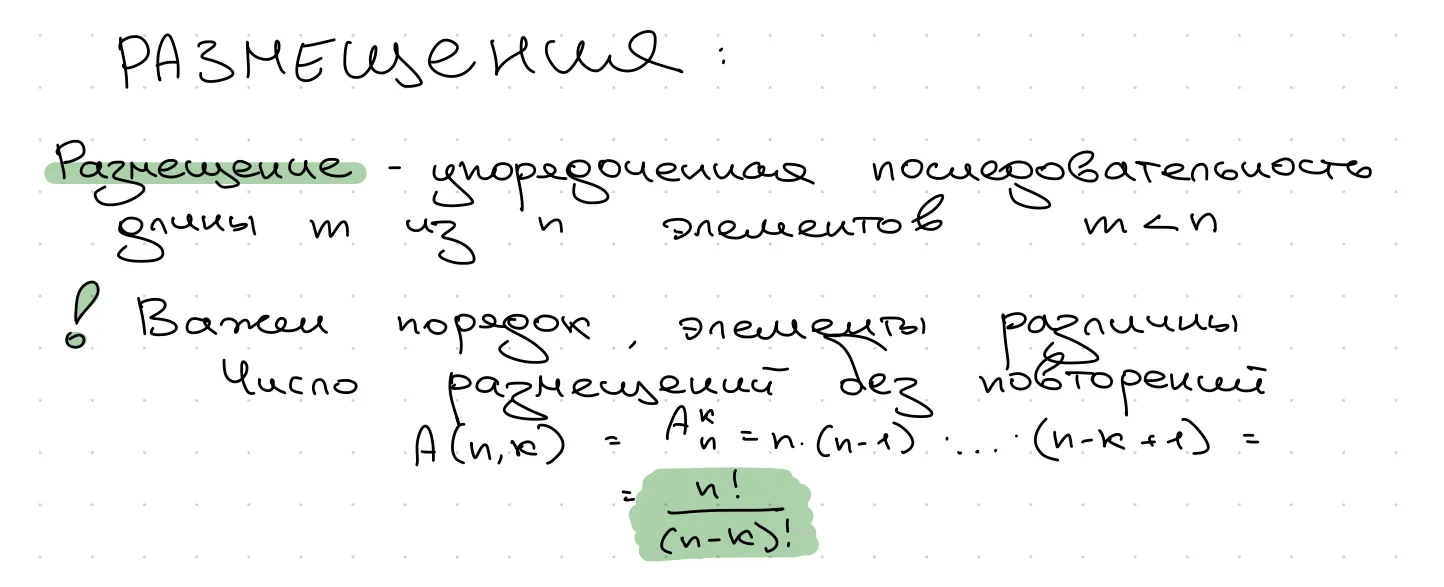 РАЗМЕЩЕНИЯ:
Размещение - упорядоченная последовательность
длины m из n элементов m < n
! Важен порядок, элементы различны
Число размещений без повторений
A(n,k) = Aₙᵏ = n·(n-1)·...·(n-k+1) =
= n!/(n-k)!